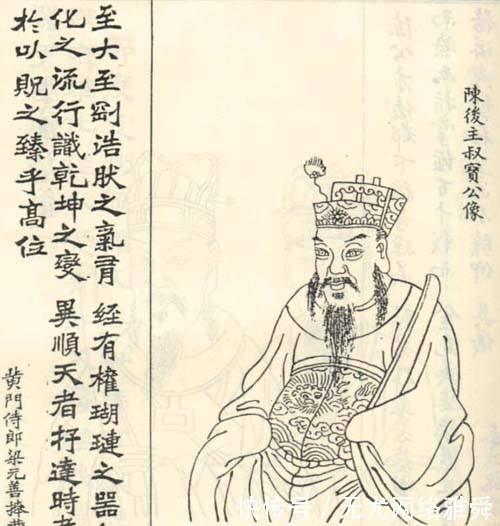 陳後主叔寶公像
至大至剛浩肰之氣 經有權瑚璉之器
化之流行識乾坤之變 異順天者 達時者
於以貺之臻乎高位
黄門侍郎梁元善撰
快传号/无尤网络雅舜